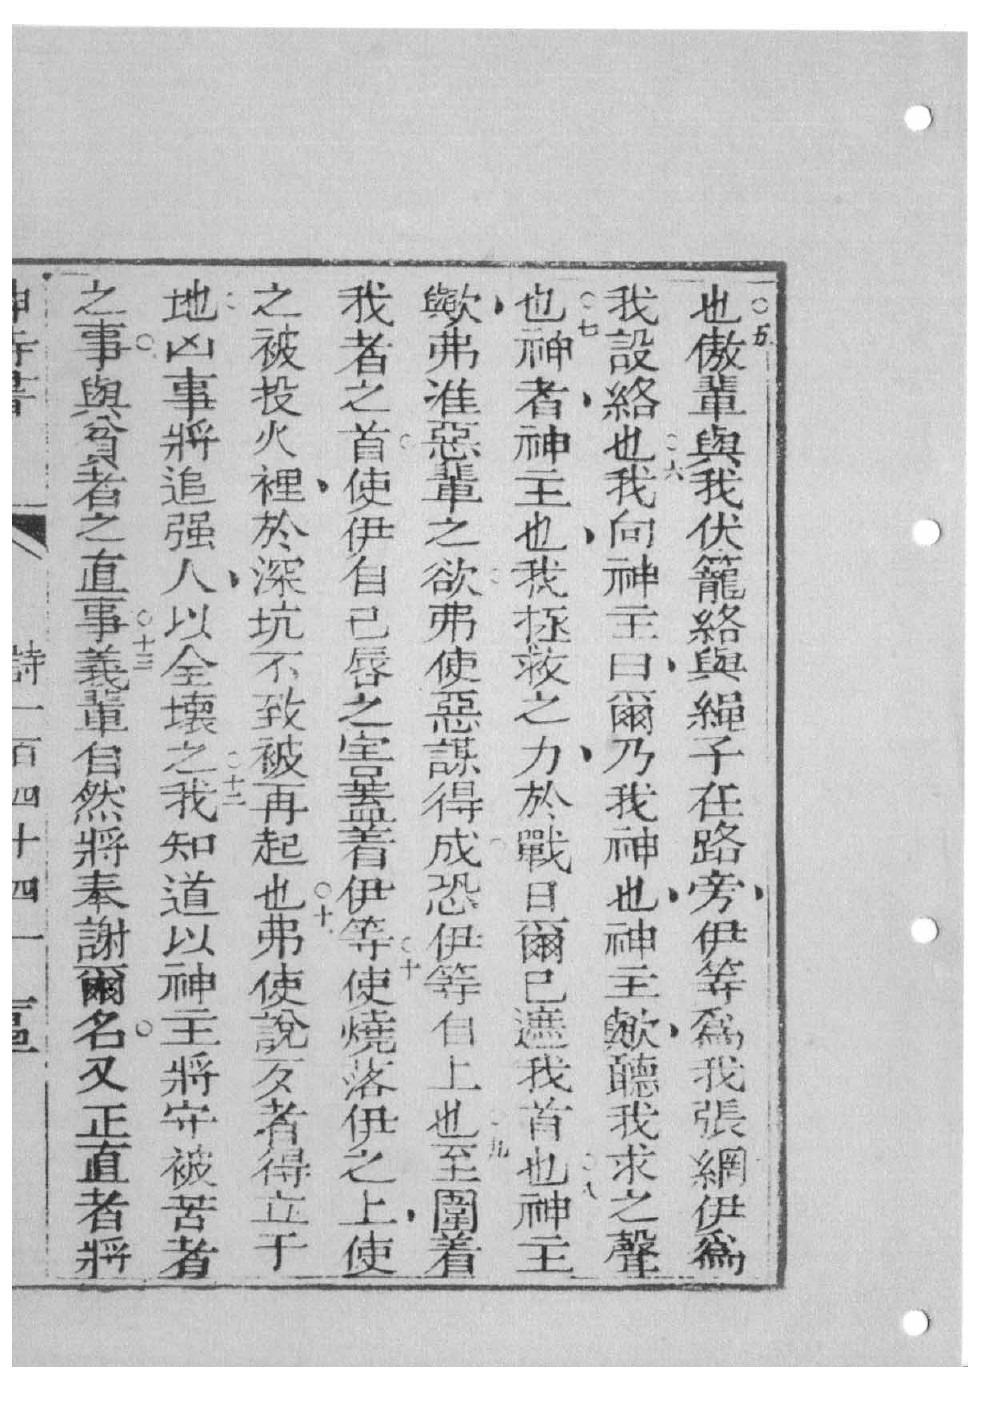 ○五
也傲輩與我伏籠絡與繩子在路旁伊等爲我張網伊爲
○六
我設絡也我向神主曰爾乃我神也神主歟聽我求之聲
○七 ○八
也神者神主也我拯救之力於戰日爾已遮我首也神主
九
歟弗准惡輩之欲弗使惡謀得成恐伊等自上也至圍着
○十
我者之首使伊自己唇之害蓋着伊等使燒落伊之上使
○十
之被投火裡於深坑不致被再起也弗使說歹者得立于
○十二
地凶事將追强人以全壞之我知道以神主將守被苦者
○十三
之事與貧者之直事義輩自然將奉謝爾名又正直者將
詩一百四十四